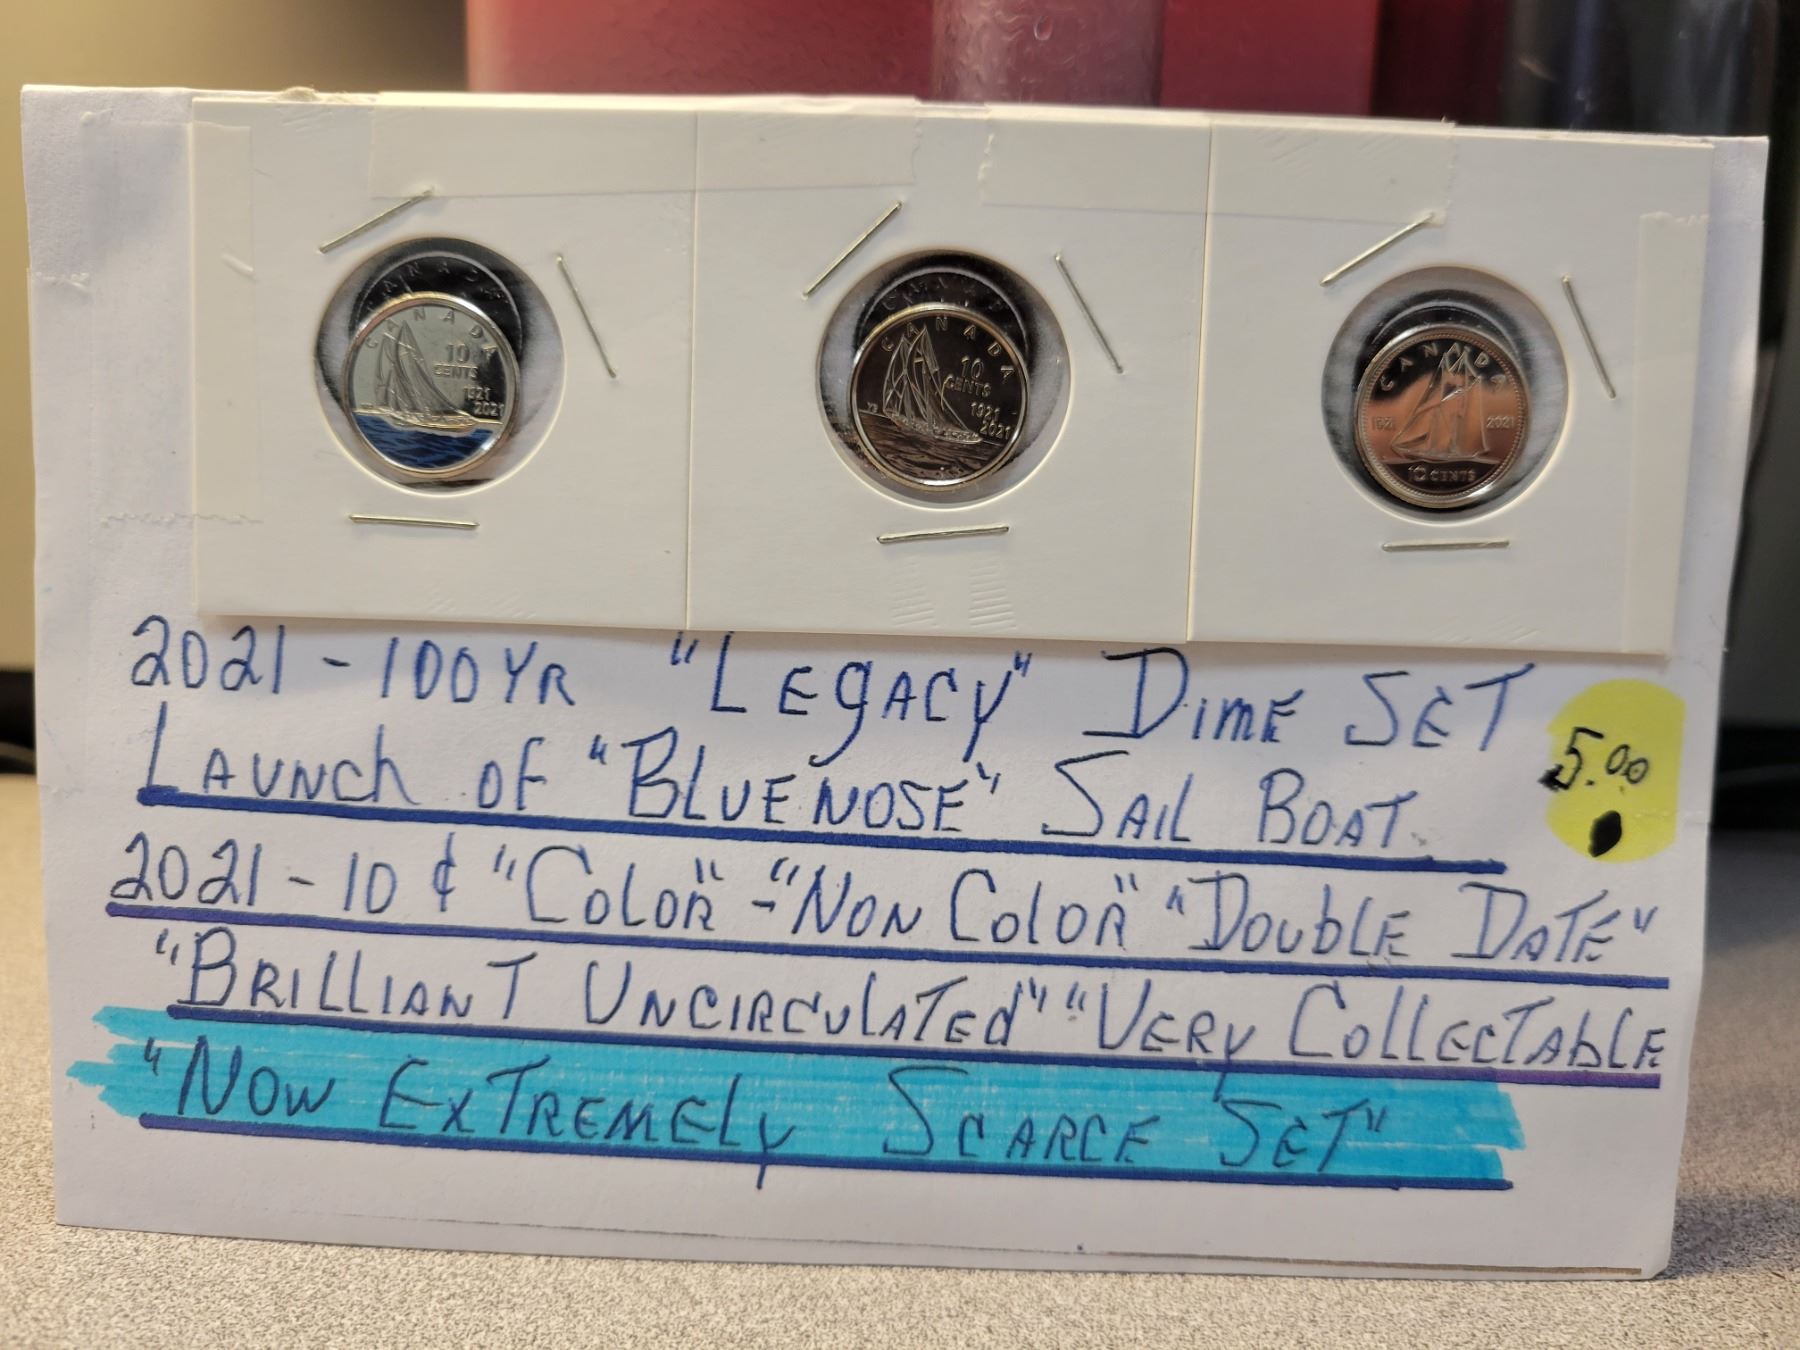 CANADA
10
CENTS
1921
2021
CANADA
10
CENTS
1921
2021
CANADA
1921 2021
10 CENTS
2021 - 100 YR "LEgACY" DimE SET
LAUNCh OF "BLUENOSE" SAIL BOAT
5.00
2021 - 10 ¢ "COLOR" - "NON COLOR" "DOUbLE DATE"
"BRILLIANT UNCIRCULATEd" "VERY COLLECTAbLE
"NOW EXTREMELY SCARCE SET"